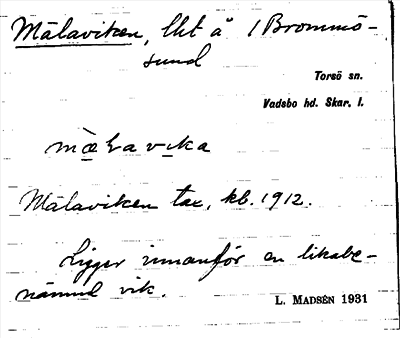 Målaviken, lht å 1 Brommö-
sund
Torsö sn.
Vadsbo hd. Skar. l.
mæ̀lavɩka
Målaviken tax, kb. 1912.
Ligger innanför en likabe-
nämnd vik.
L. Madsén 1931